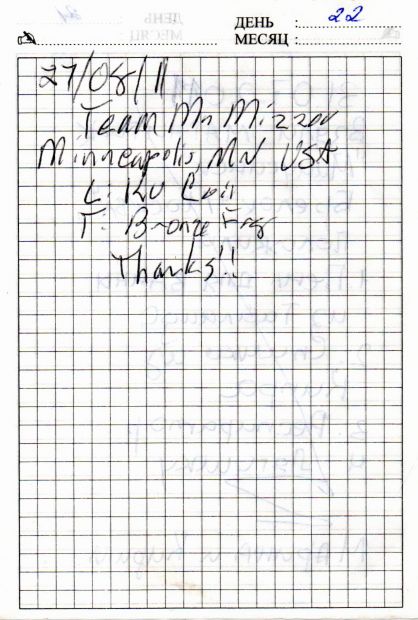 ДЕНЬ : 22
МЕСЯЦ :
27/08/11
Team Mn Mizzou
Minneapolis, MN USA
L: KU Coin
T: Bronze Frog
Thanks!!